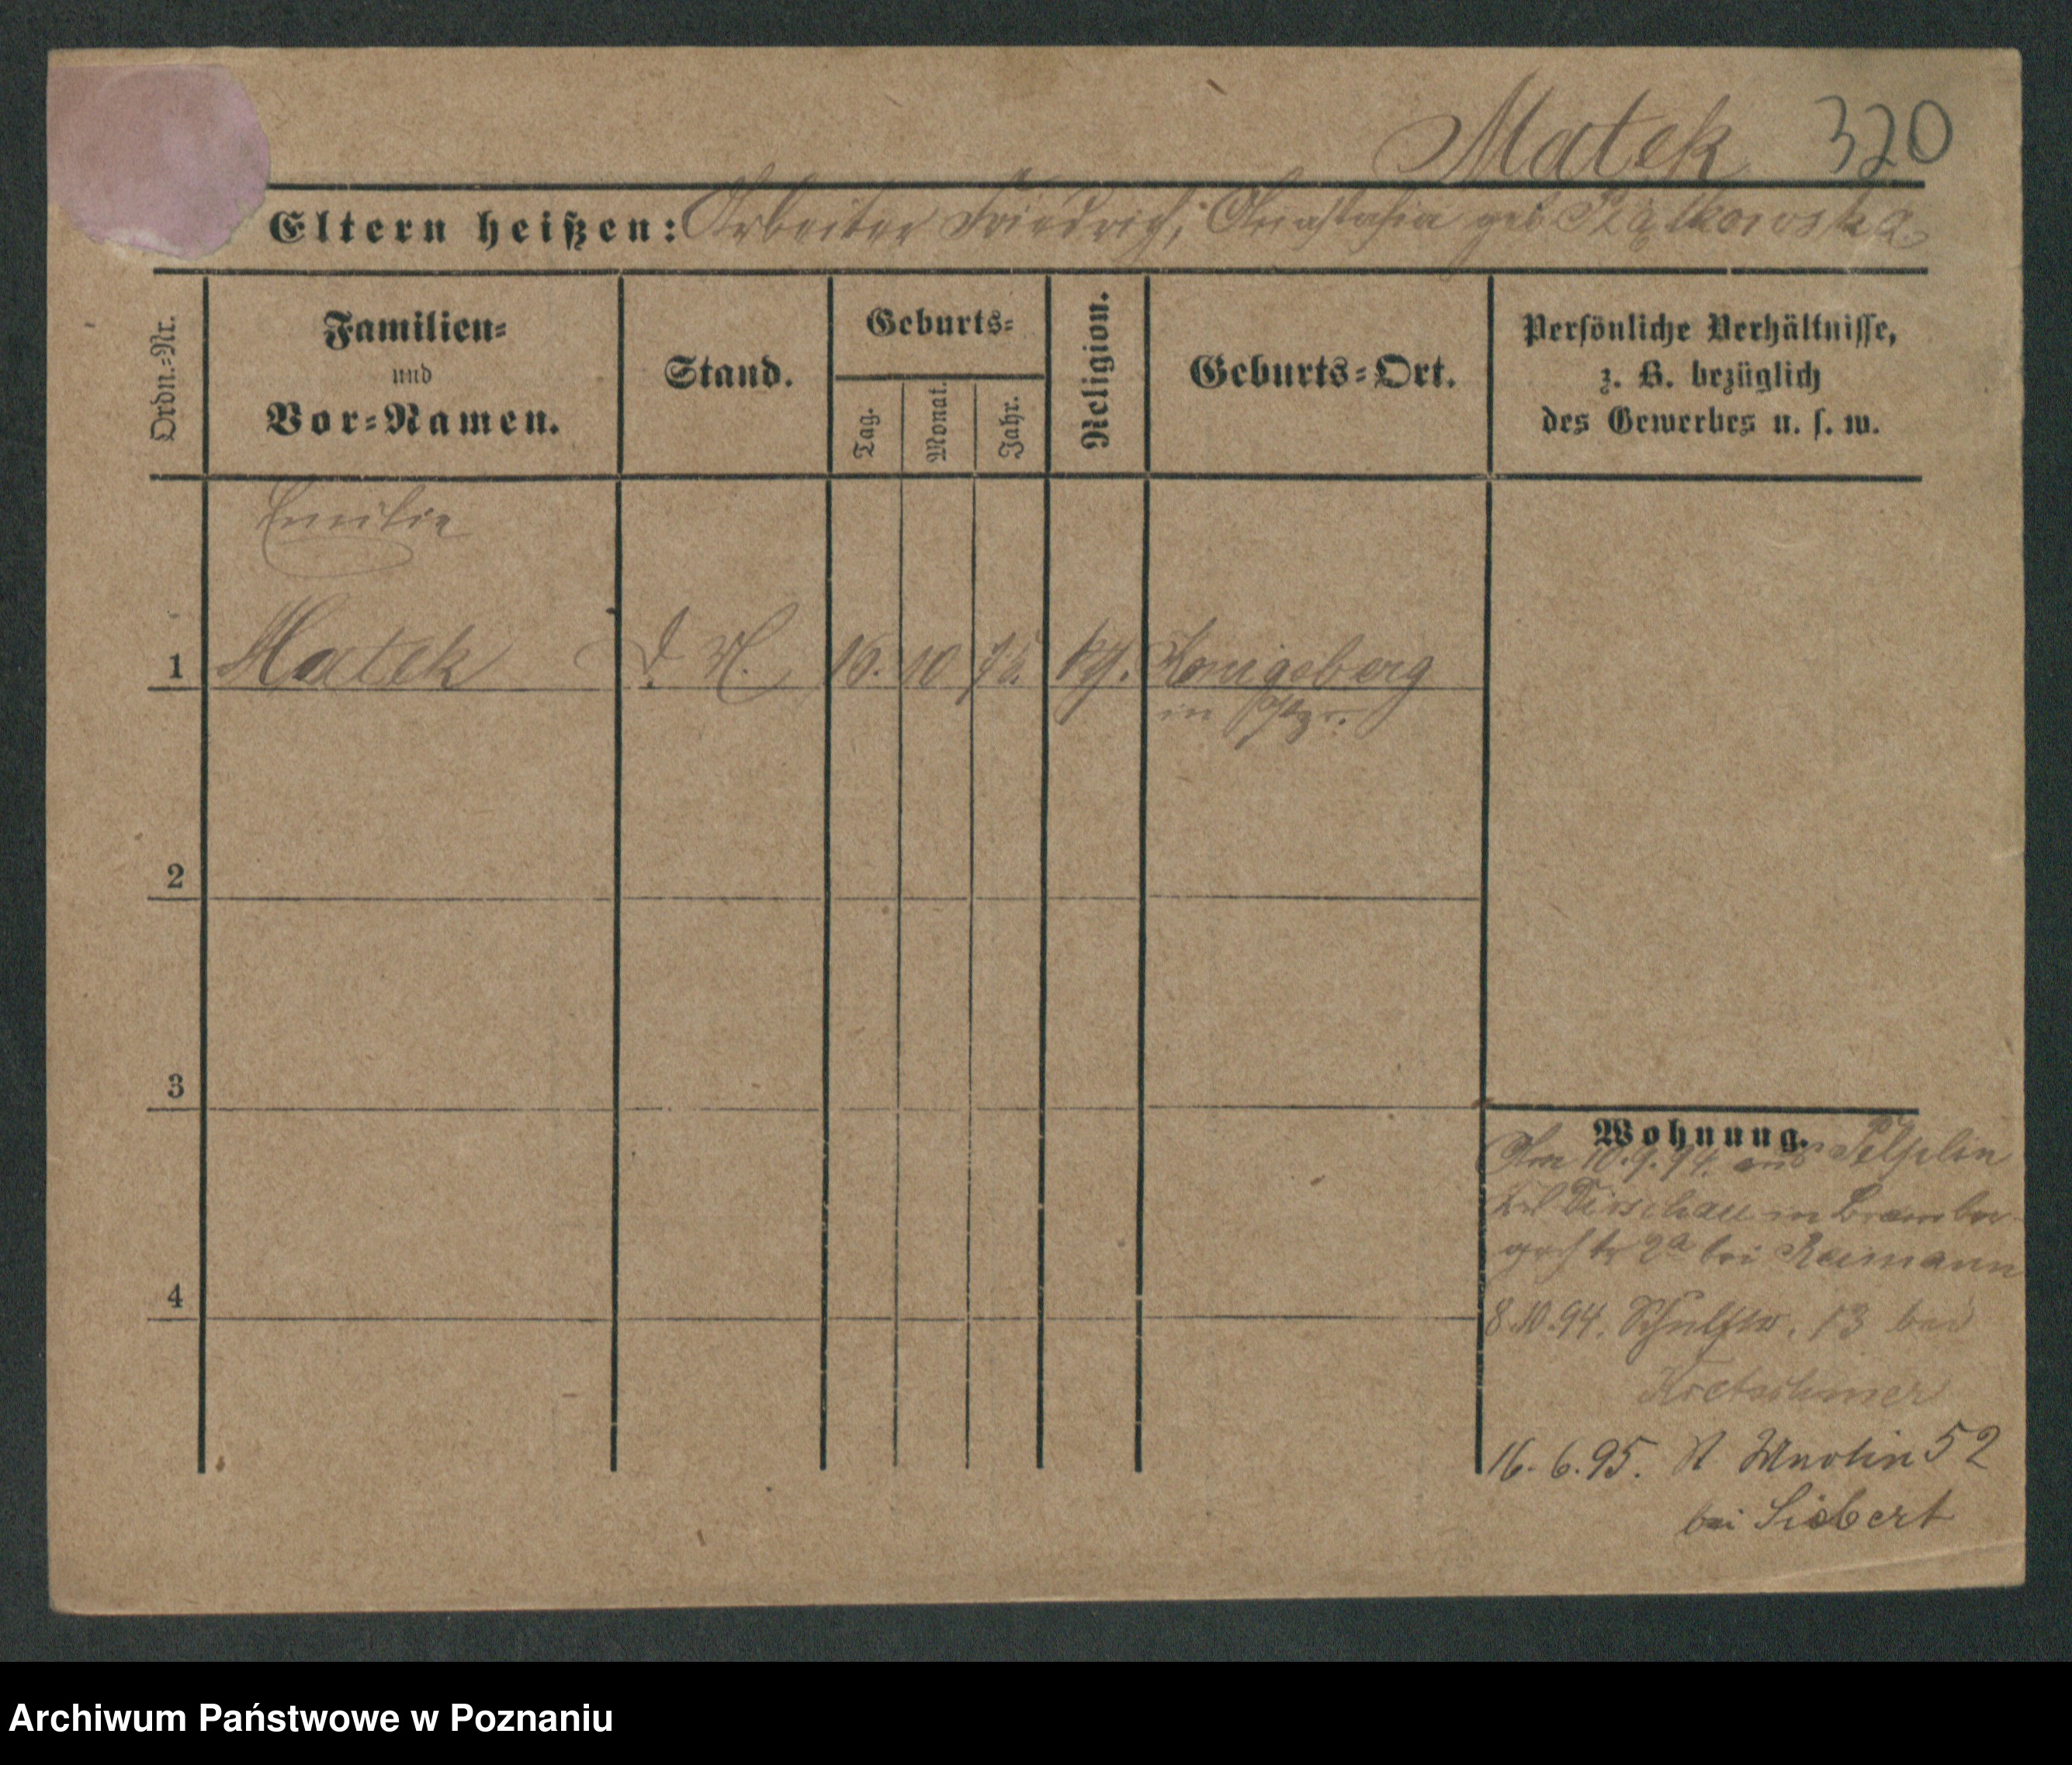 Matek 320
Eltern heißen: Arbeiter Friedrich, Anastasia geb Piątkowska
Ordn.=Nr.
Familien=
und
Vor=Namen.
Stand.
Geburts=
Tag.
Monat.
Jahr.
Religion.
Geburts=Ort.
Persönliche Verhältnisse,
z. B. bezüglich
des Gewerbes u. s. w.
Emilie
1 Matek d. M. 10 Königsberg
in
2
3
4
Wohnung.
Am 10.9.94. aus Pelplin
Dirschau in Bromber
2a bei Reimann
8.10.94. Schulstr. 13 bei
Kretschmer
16.6.95. St Martin 52
bei Siebert
Archiwum Państwowe w Poznaniu